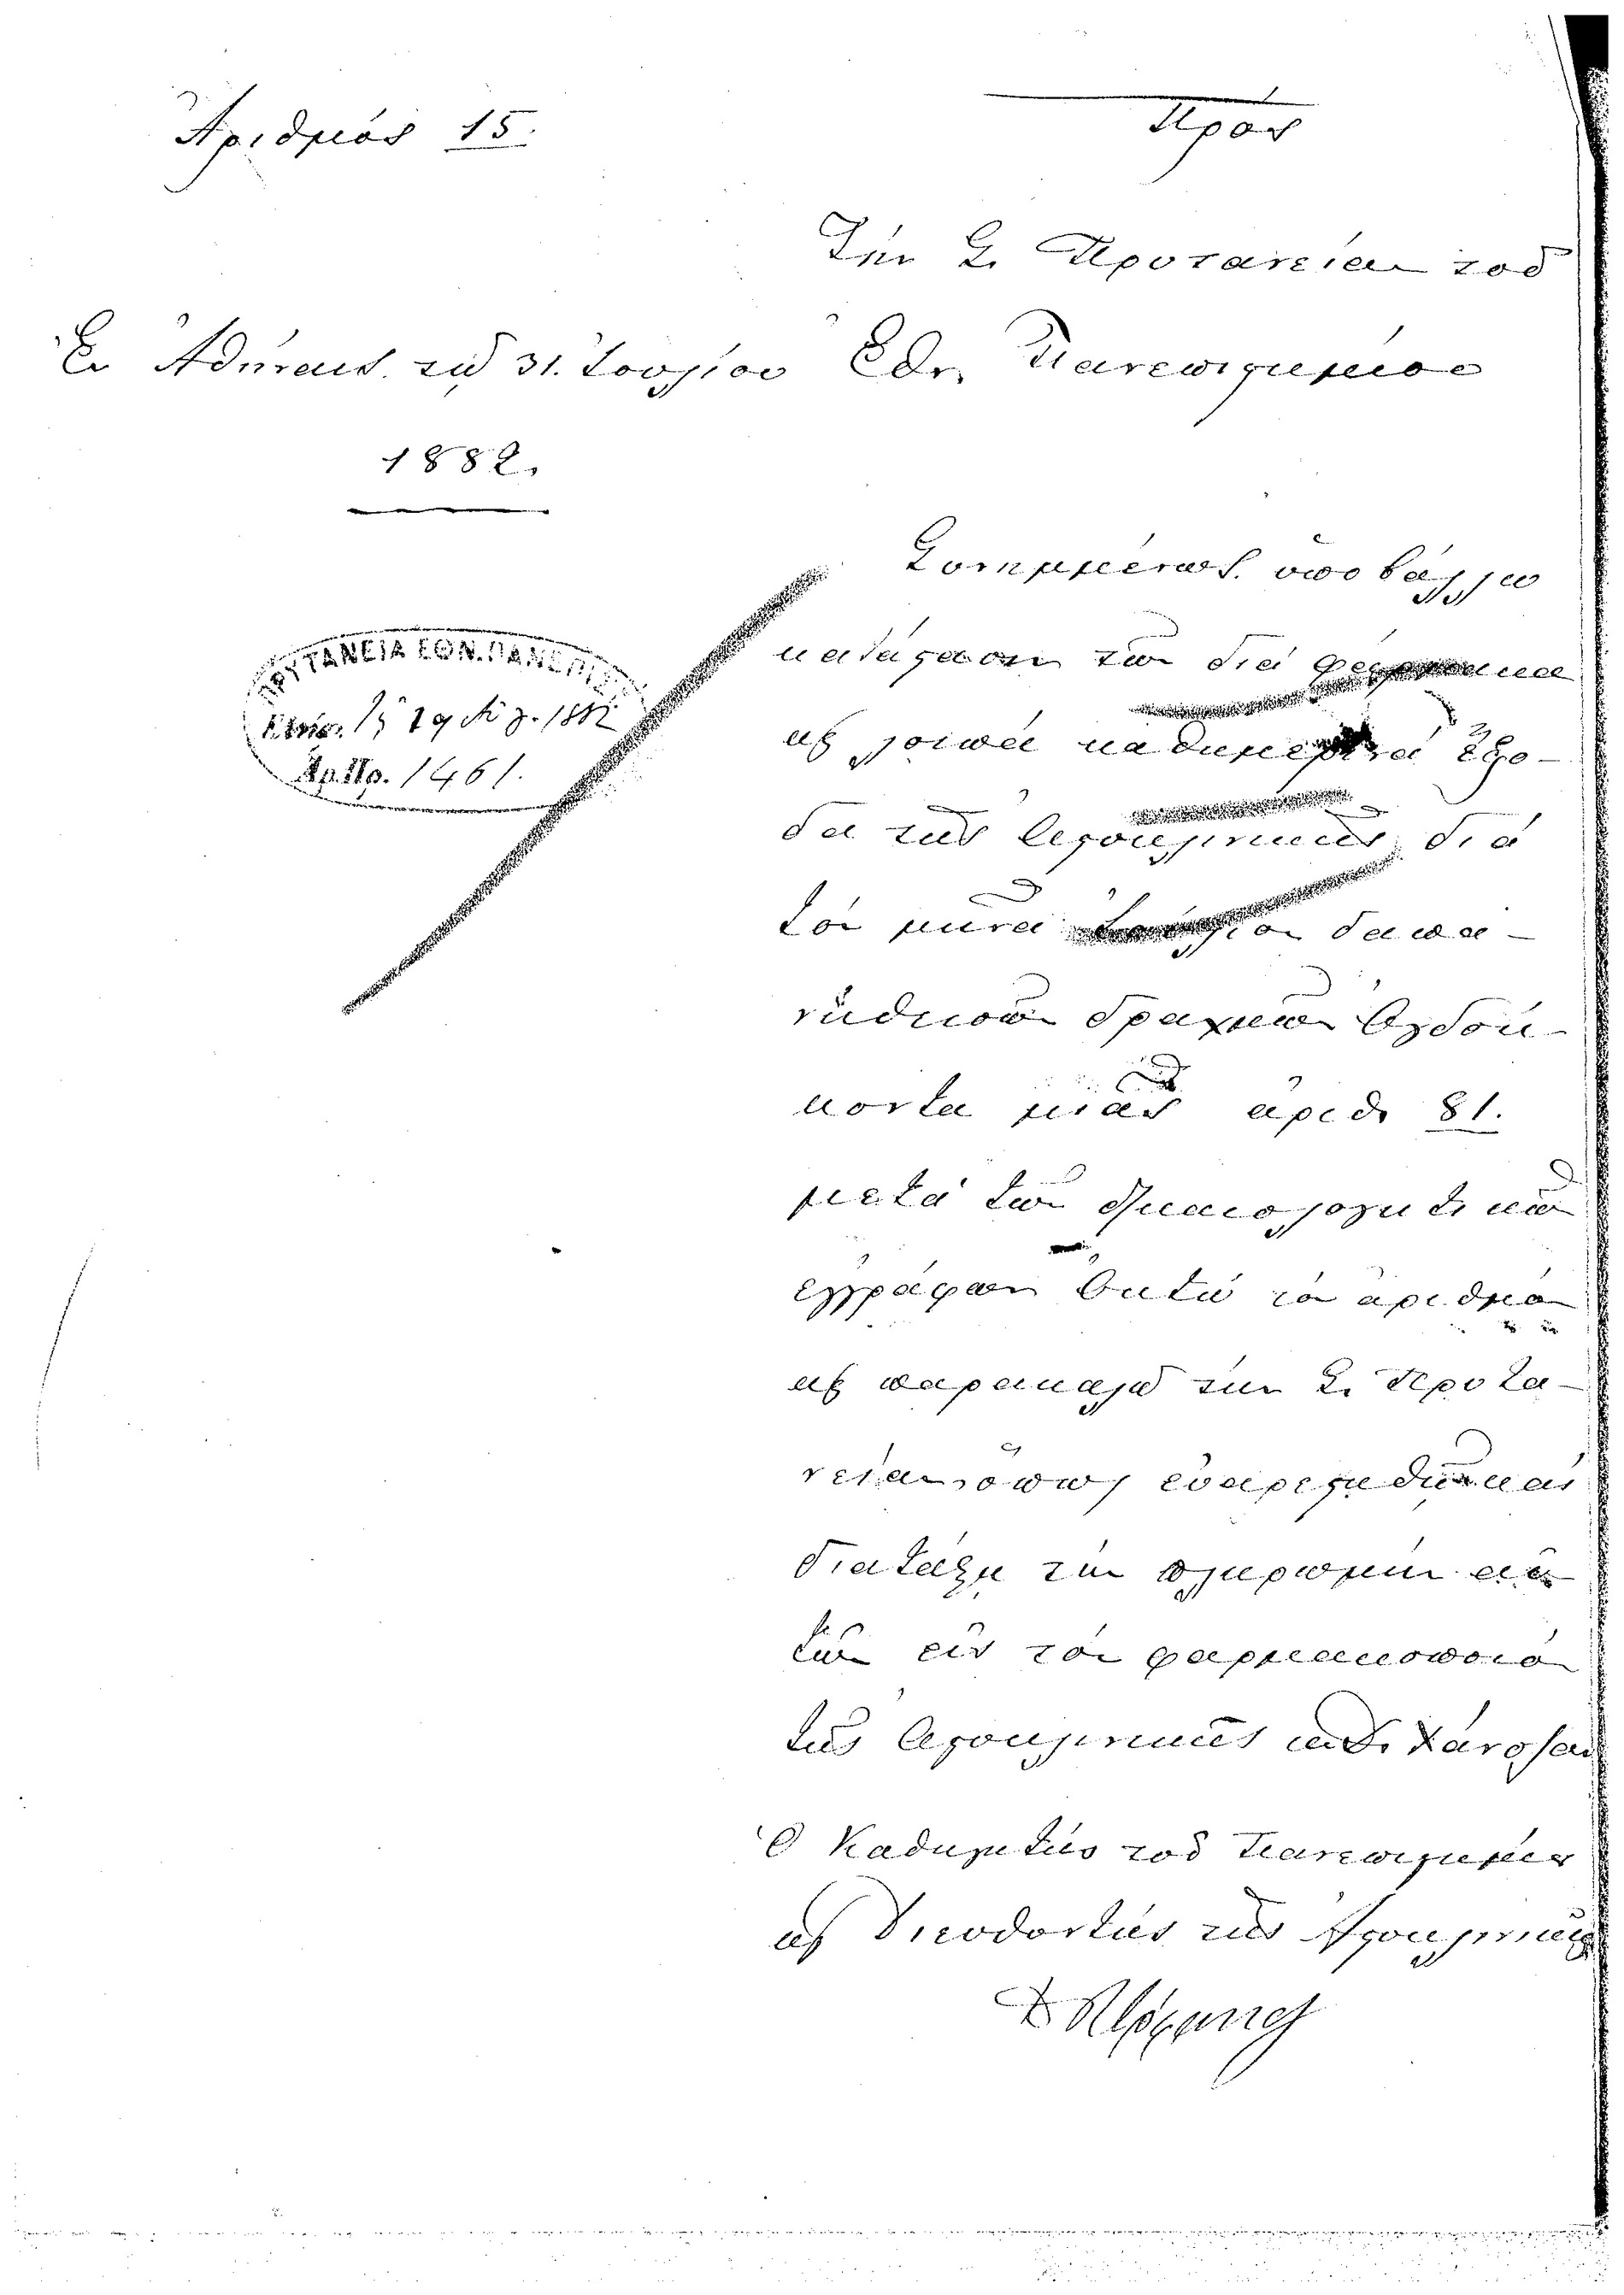 Ἀριθμὸς 15.
Ἐν Ἀθήναις τῇ 31. Ἰουλίου
1882.
ΠΡΥΤΑΝΕΙΑ ΕΘΝ. ΠΑΝΕΠΙΣ
19 1882
Ἀρ. Πρ. 1461.
Πρὸς
Τὴν Σ. Πρυτανείαν τοῦ
Ἐθν. Πανεπιστημίου
Συνημμένως ὑποβάλλω
κατάστασιν τῶν διὰ φάρμακα
καὶ λοιπὰ καθημερινὰ ἔξο-
δα τῆς Ἀστυκλινικῆς διὰ
τὸν μῆνα Ἰούλιον δαπα-
νηθεισῶν δραχμῶν ὀγδοή-
κοντα μιᾶς ἀριθ. 81.
μετὰ τῶν δικαιολογητικῶν
ἐγγράφων ὀκτὼ τὸν ἀριθμὸν
καὶ παρακαλῶ τὴν Σ. Πρυτα-
νείαν, ὅπως εὐαρεστηθῇ καὶ
διατάξῃ τὴν πληρωμὴν αὐ
τῶν εἰς τὸν φαρμακοποιὸν
τῆς Ἀστυκλινικῆς
Ὁ Καθηγητὴς τοῦ Πανεπιστημίου
καὶ Διευθυντὴς τῆς Ἀστυκλινικῆς